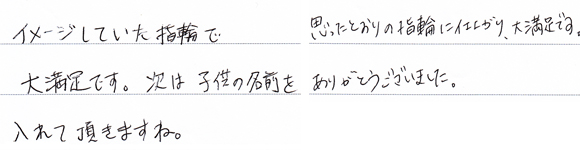 イメージしていた指輪で
大満足です。次は子供の名前を
入れて頂きますね。
思ったとおりの指輪に仕上がり、大満足です。
ありがとうございました。